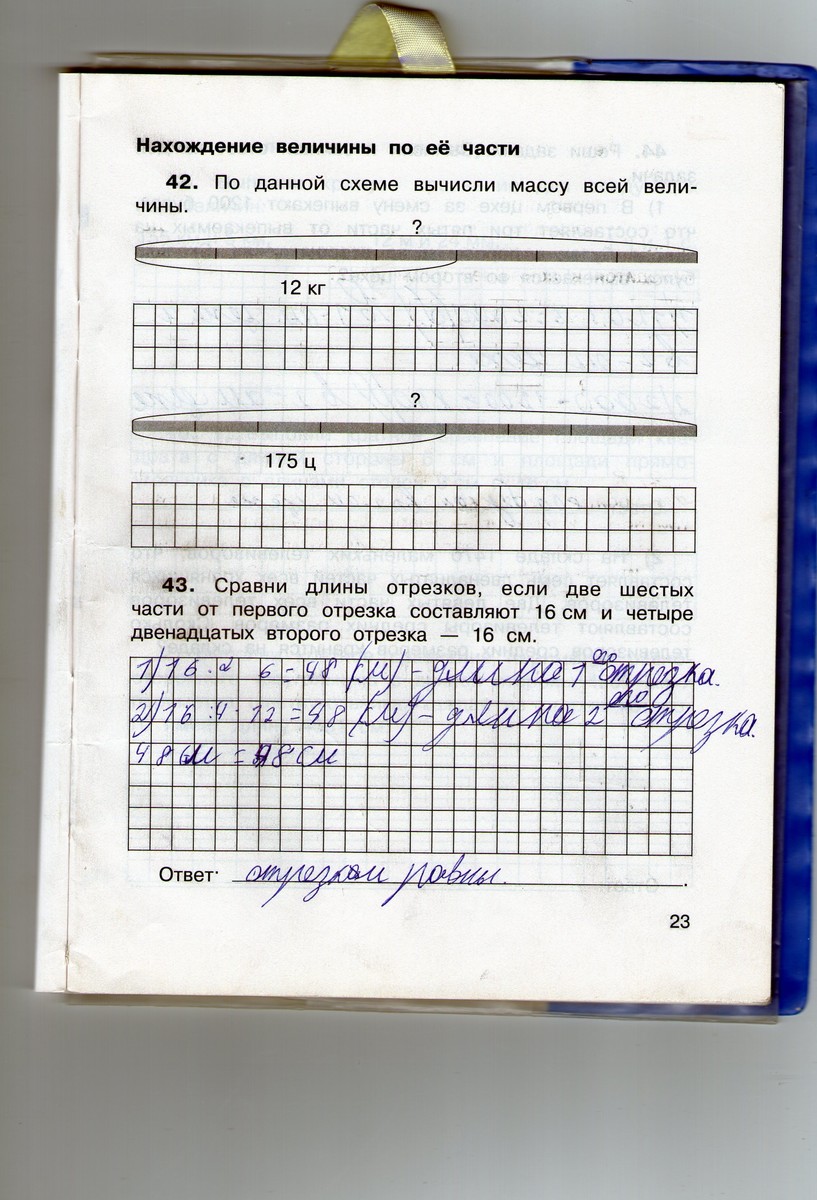 Нахождение величины по её части
42. По данной схеме вычисли массу всей вели-
чины.
?
12 кг
?
175 ц
43. Сравни длины отрезков, если две шестых
части от первого отрезка составляют 16 см и четыре
двенадцатых второго отрезка — 16 см.
1) 16 : 2 · 6 = 48 (см) - длина 1го отрезка.
2) 16 : 4 · 12 = 48 (см) - длина 2го отрезка.
48 см = 48 см
Ответ: отрезки равны.
23